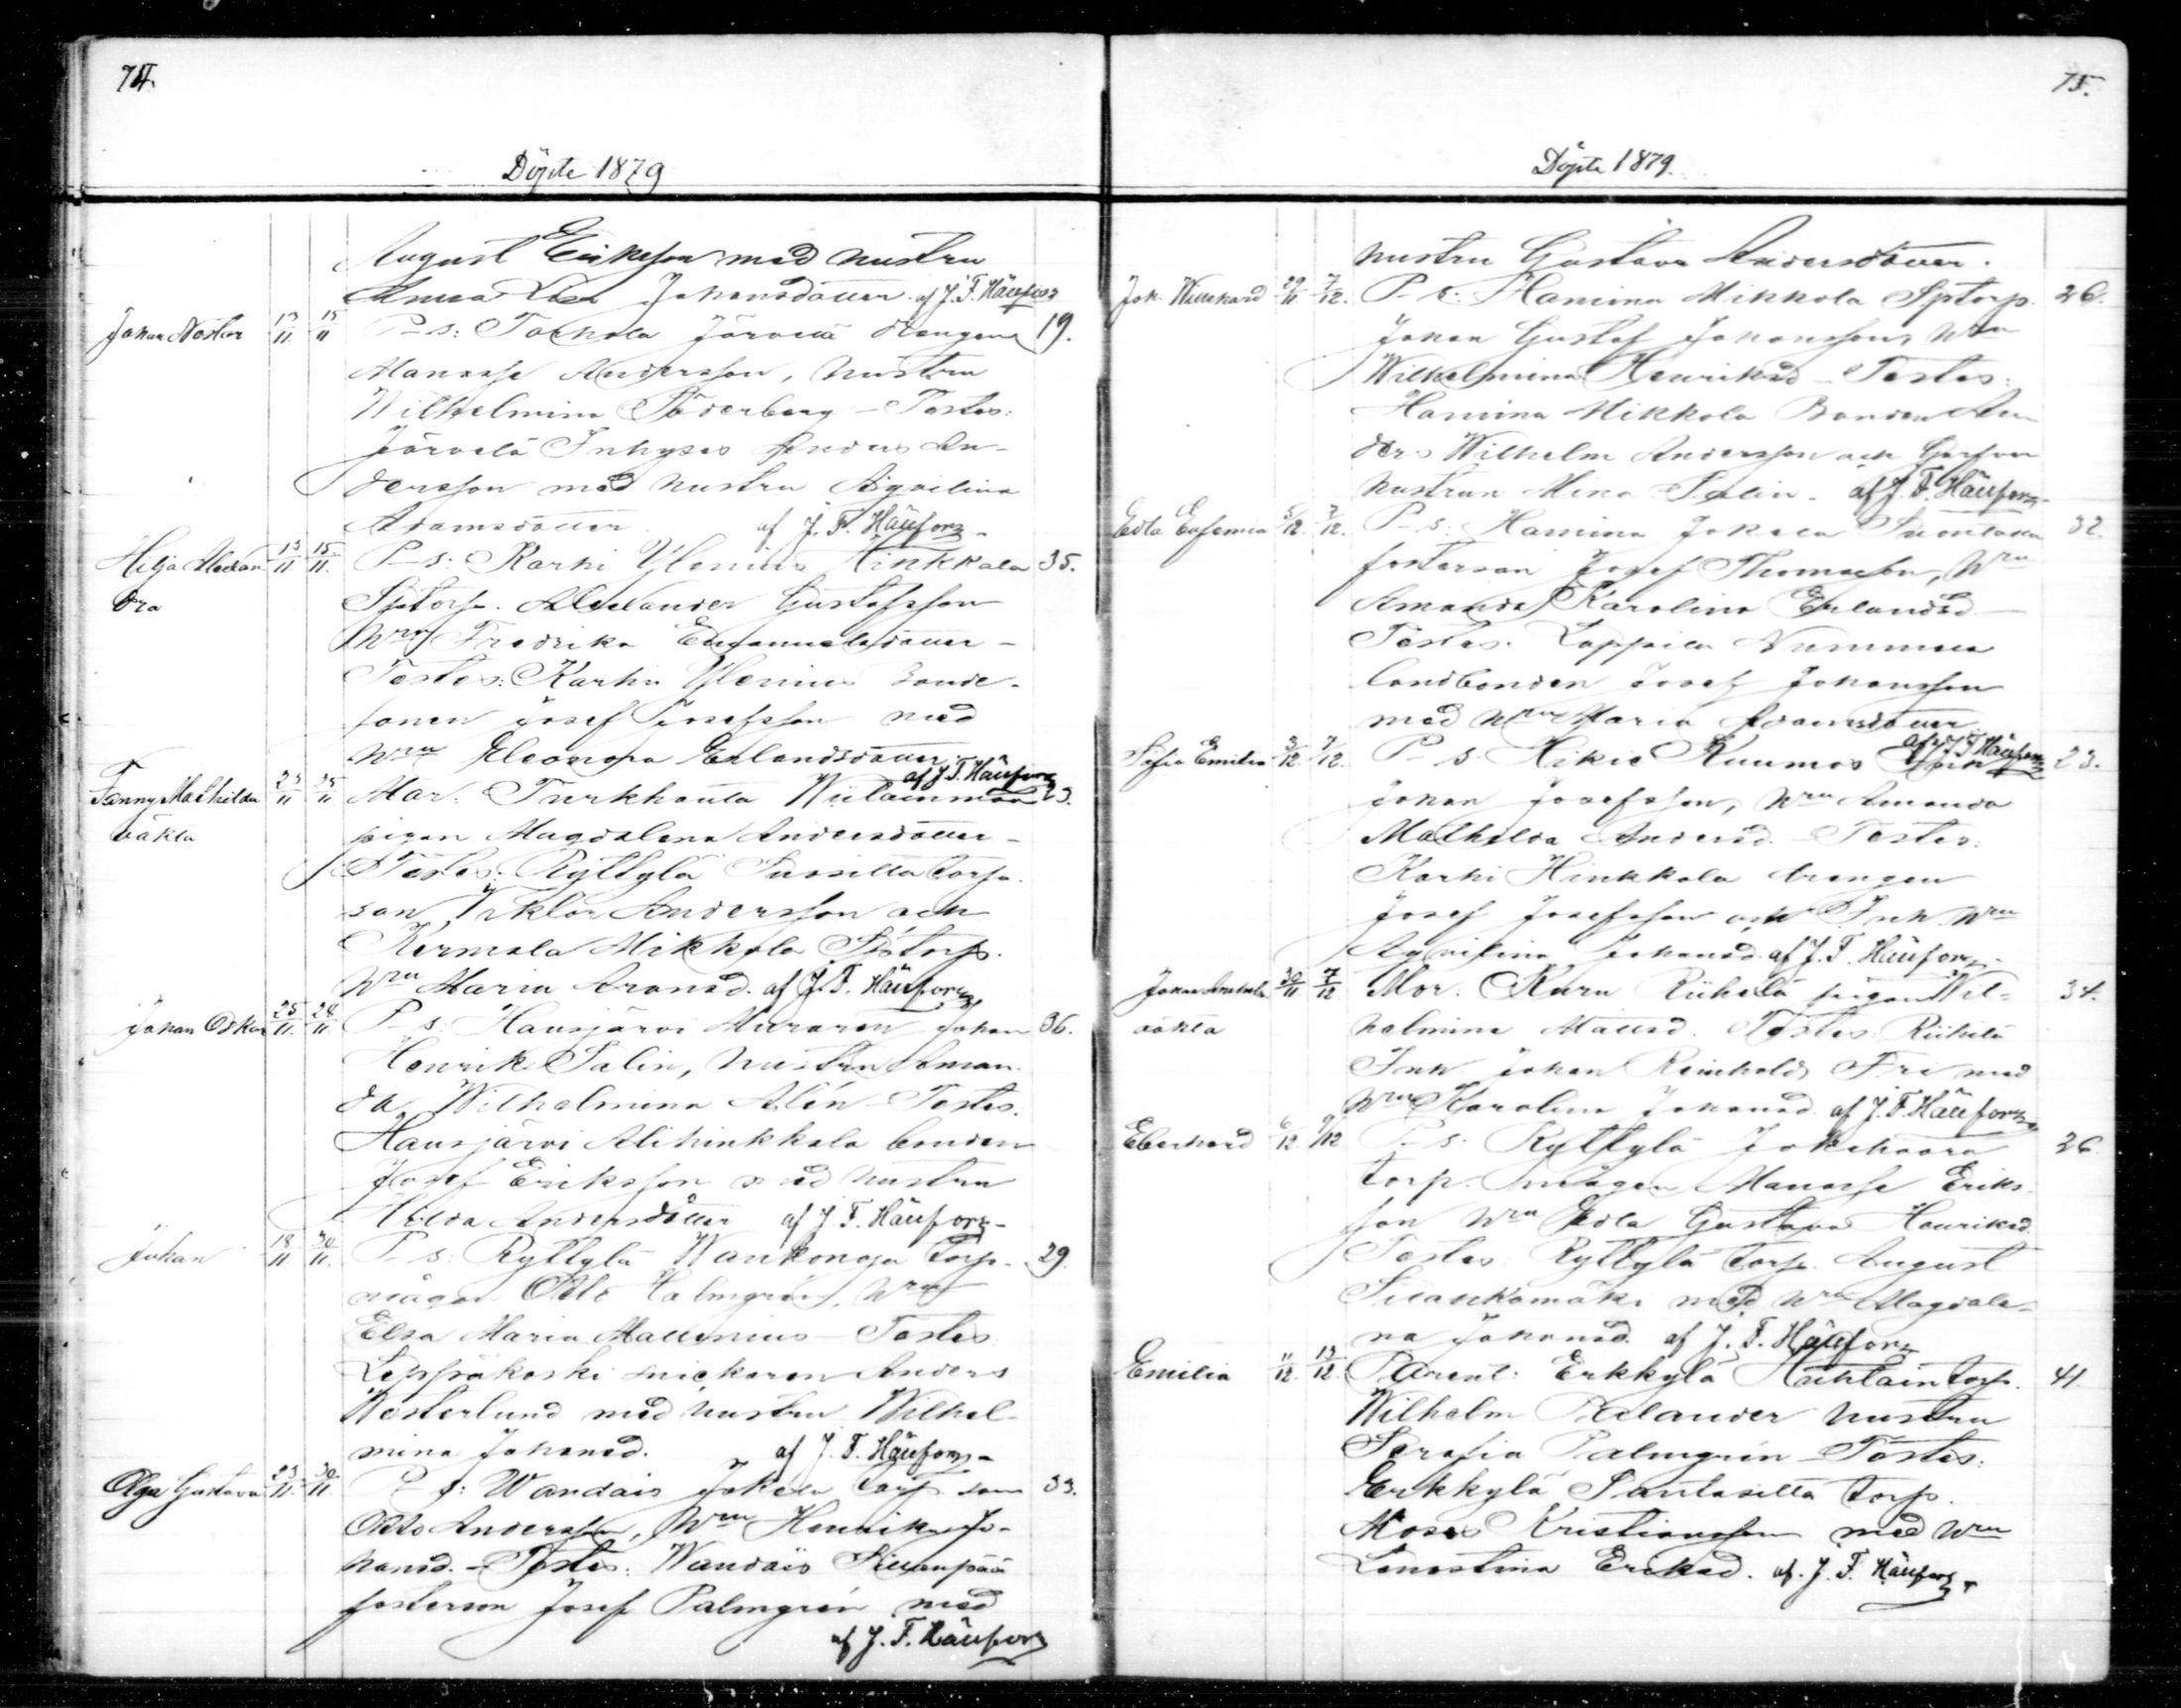 74.
Döpte 1879
August Eriksson med hustru
Anna Lisa Johansdotter. af J. F. Häufors
Johan Nestor 13/11 15/11 P-s: Torhola Järvelä drengen 19.
Manasse Andersson, hustru
Wilhelmina Söderberg – Testes:
Järvelä Inhyses Anders An-
dersson med hustru Aqvilina
Adamsdotter af J. F. Häufors
Hilja Alexan- 13/11 15/11 P-s: Karhi Ylenius Hinkkala 35.
dra Sptorp. Alexander Gustafsson
Hru Fredrika Emanuelsdotter –
Testes: Karhi Ylenius bonde-
sonen Josef Josefsson med
hru Eleonora Erlandsdotter
af J. F. Häufors
Fanny Mathilda 23/11 25/11 Mor. Turkhauta 23.
oäkta pigan Magdalena Andersdotter –
Testes: Ryttylä torp.
son Viktor Andersson och
Kermala Mikkola Sptorp.
hru Maria Aronsd. af J. F. Häufors
Johan Oskar 25/11 28/11 P-s: Hausjärvi Muraren Johan 36.
Henrik Salin, hustru Aman-
da Wilhelmina Alén – Testes:
Hausjärvi Alihinkkala bonden
Josef Eriksson med hustru
Hilda Andersdotter af J. F. Häufors
Johan 18/11 30/11 P-s: Ryttylä Wankonoja torp. 29.
mågen Otto Halmgrén, hru
Elsa Maria Mallenius – Testes
Leppäkoski snickaren Anders
Westerlund med hustru Wilhel-
mina Johansd. af J. F. Häufors
Olga Gustava 23/11 30/11 P-s: Wandais Jokela torp. son 33.
Otto Andersson, hru Henrika Jo-
hansd. – Testes: Wandais
fosterson Josef Palmgrén med
af J. F. Häufors
75.
Döpte 1879.
hustru Gustava Andersdotter.
Joh. Willehard 29/11 7/12. P-s: Hamina Mikkola Sptorp. 26.
Johan Gustaf Johansson, hru
Wilhelmina Henriksd – Testes:
Hamina Mikkola Bonden An-
ders Wilhelm Andersson och
hustrun Mina Salin. af J. F. Häufors
Edla Eufemia 5/12. 7/12. P-s: Hamina Jokela 32.
fosterson Josef Thomasson, hru
Amanda Karolina Erlandsd –
Testes. Lappila Nummela
landbonden Josef Johansson
med hru Maria Adamsdotter
af J. F. Häufors
Sofia Emilia 3/12 7/12. P-s. Hikiä Kuumos 23.
Johan Josefsson, hru Amanda
Mathilda Andersd. – Testes:
Karhi Hinkkala drengen
Josef Josefsson och Inh. hru
Aqvilina Johansd. af J. F. Häufors
Johan 30/11 7/12 Mor. Kuru Riihelä pigan Wil- 34.
oäkta helmina Mattsd. Testes Riihelä
Inh Johan Reinhold Fri med
hru Karolina Johansd. af J. F. Häufors
Eberhard 6/12. 9/12 P-s. Ryttylä Jokihaara 26.
torp. mågen Manasse Eriks-
son hru Edla Gustava Henriksd.
Testes Ryttylä torp. August
med hru Magdale-
na Johansd. af J. F. Häufors
Emilia 11/12. 13/12. Parent: Erkkylä torp. 41.
Wilhelm Palander hustru
Serafia Palmgrén – Testes:
Erkkylä Santasilta torp.
Moses Kristiansson med hru
Lenastina Eriksd. af. J. F. Häufors